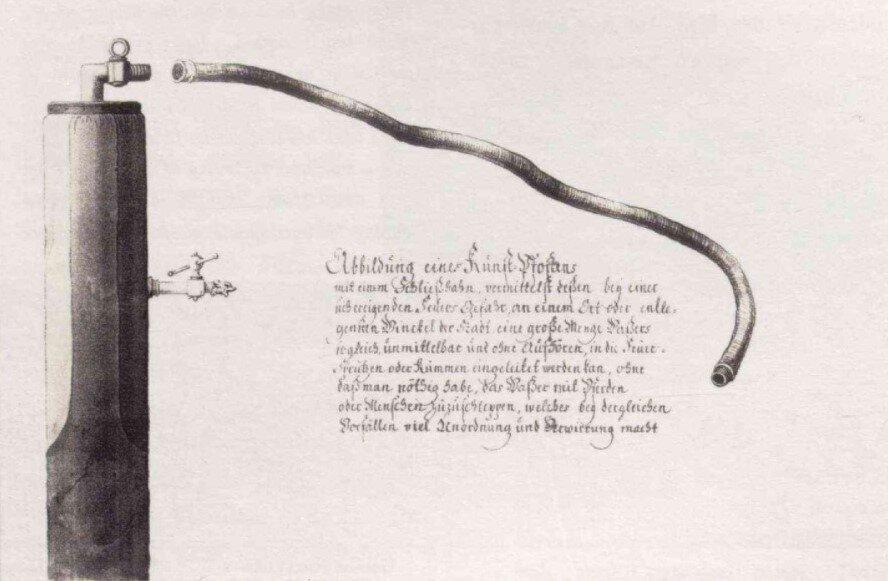 Abbildung eines Kunst-Pfostens
mit einem Schließhahn, vermittelst deßen bey einer
sich ereigenden Feuers Gefahr, an einem Ort oder entle-
genen Winckel der Stadt eine große Menge Waßers
sogleich, unmittelbar und ohne Aufhören, in die Feuer-
Spruitzen oder Kummen eingeleitet werden kan, ohne
daß man nöthig habe, das Waßer mit Pferden
oder Menschen zuzuschleppen, welches bey dergleichen
Vorfällen viel Unordnung und Verwirrung macht